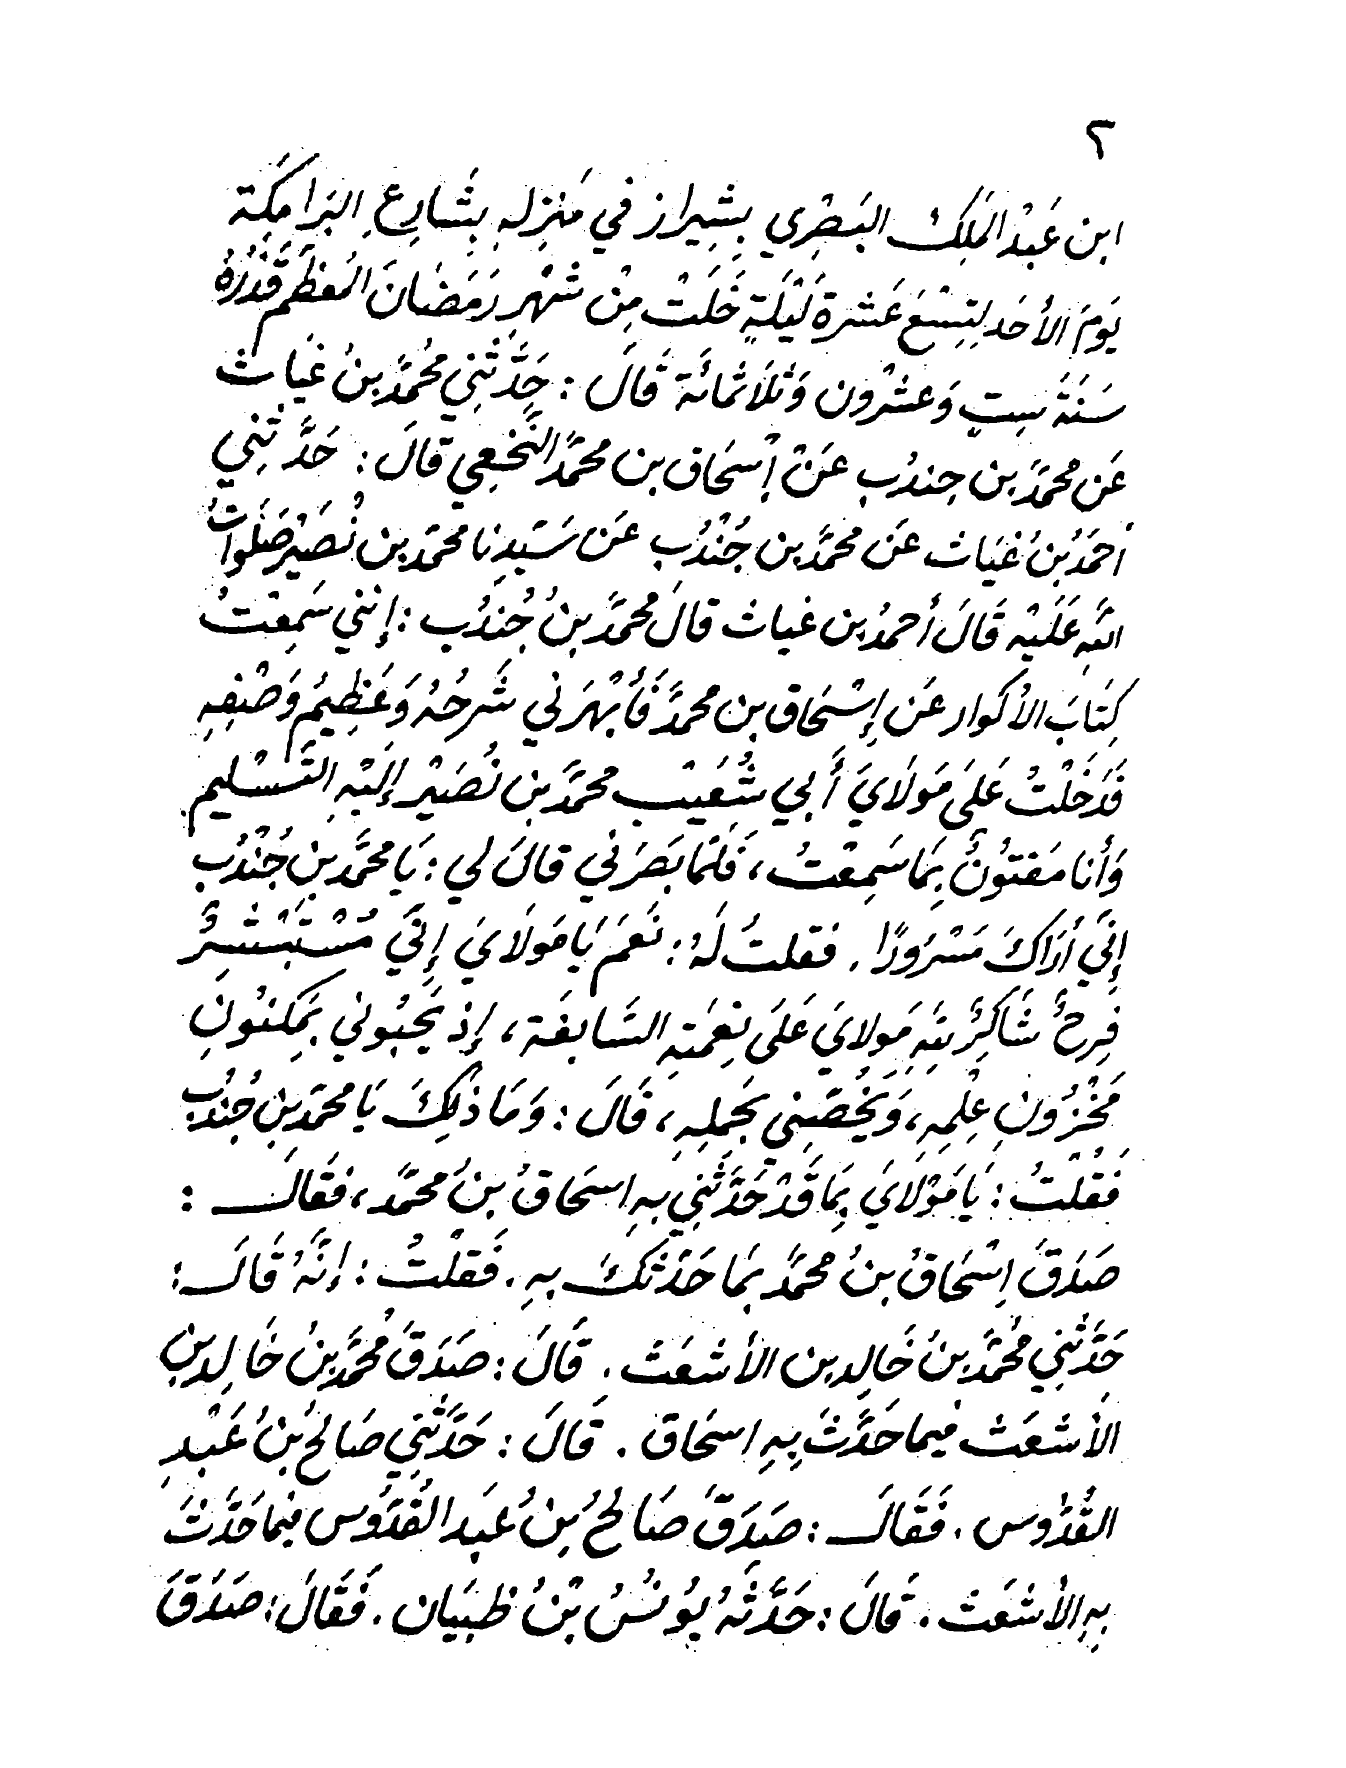 ٢
ابن عَبْد المَلِك البَصْرِي بِشِيراز في مَنِزِلهِ بِشَارِعِ البَرَامِكَة
يَومَ الأَحَد لِتِسْعَ عَشرة لَيْلَةٍ خَلَتْ مِنْ شَهْرِ رَمَضَانَ المُعَظَّم قَدْرُهُ
سَنَةَ سِتٍ وَعشْرُون وَثَلاَثمائَة قَالَ : حَدَّثَنِي مُحمَّدُ بنُ غيَاث
عَن محمَّد بن جِندُبِ عَنْ إِسْحَاق بن محمَّد النَّخعِي قالَ : حَدَّثنِي
أحمَدُ بنُ غيَاث عَن محمَّد بن جُنْدُب عَن سَيّدِنا محمّد بن نُصَيْر صَلَواتُ
اللهِ عَلَيْهِ قَالَ أحمدُ بن غياث قالَ محمَّد بنُ جُندُب : إنني سَمِعْتُ
كِتَابَ الأكوار عَن إِسْحَاق بن محمَّد فَأَبْهَرَني شَرحُهُ وَعَظِيمُ وَصْفِهِ
فَدَخَلْتُ عَلَى مَولاَيَ أَبي شُعَيْب محمَّد بن نُصَيْر إلَيْهِ التَّسْليم
وَأنا مَفتُونٌ بِمَا سَمِعْتُ ، فَلمّا بَصَرَني قالَ لي : يَا محمَّد بن جُنْدُب
إنّي أرَاكَ مَسْرَورًا . فقلتُ لَهُ : نَعَمَ يَا مَولاَيَ إِنّي مُسْتَبْشِرٌ
فِرحٌ شَاكِرٌ للهِ مَولايَ عَلَى نِعْمَتِهِ السَّابغَة ، إذ يَحْبُوني بَمِكنُونِ
مَخْزُونِ عِلْمِهِ ، وَيَخُصّنِي بَحَملِهِ ، قَالَ : وَمَا ذلِكَ يَا محمّد بنِ جُندُب
فَقُلْتُ : يَا مَوْلاَيَ بِمَا قَدْ حَدَّثَنِي بِهِ اسحَاقُ بنُ محمَّد ، فقَالَ :
صَدَقَ اِسْحَاقُ بنُ محمَّد بَمَا حَدَّثكَ بِهِ . فَقلْتُ : إنَّهُ قَالَ :
حَدَّثَنِي مُحمَّدُ بنُ خَالِد بن الأشعَث . قَالَ : صَدَقَ مُحمَّد بنُ خَالِد بن
الأشعَث فيما حَدَّثَ بِهِ اسحَاق . قَالَ : حَدَّثَنِي صَالحُ بْنُ عَبْدِ
القُدُّوس . فَقَالَ : صَدَقَ صَالحُ بنُ عَبَد القُدَّوس فيما حَدَّثَ
بِهِ الأشعَث . قَالَ : حَدَّثَهُ يُونُسُ بْنُ ظبيَان . فَقَالَ : صَدَقَ